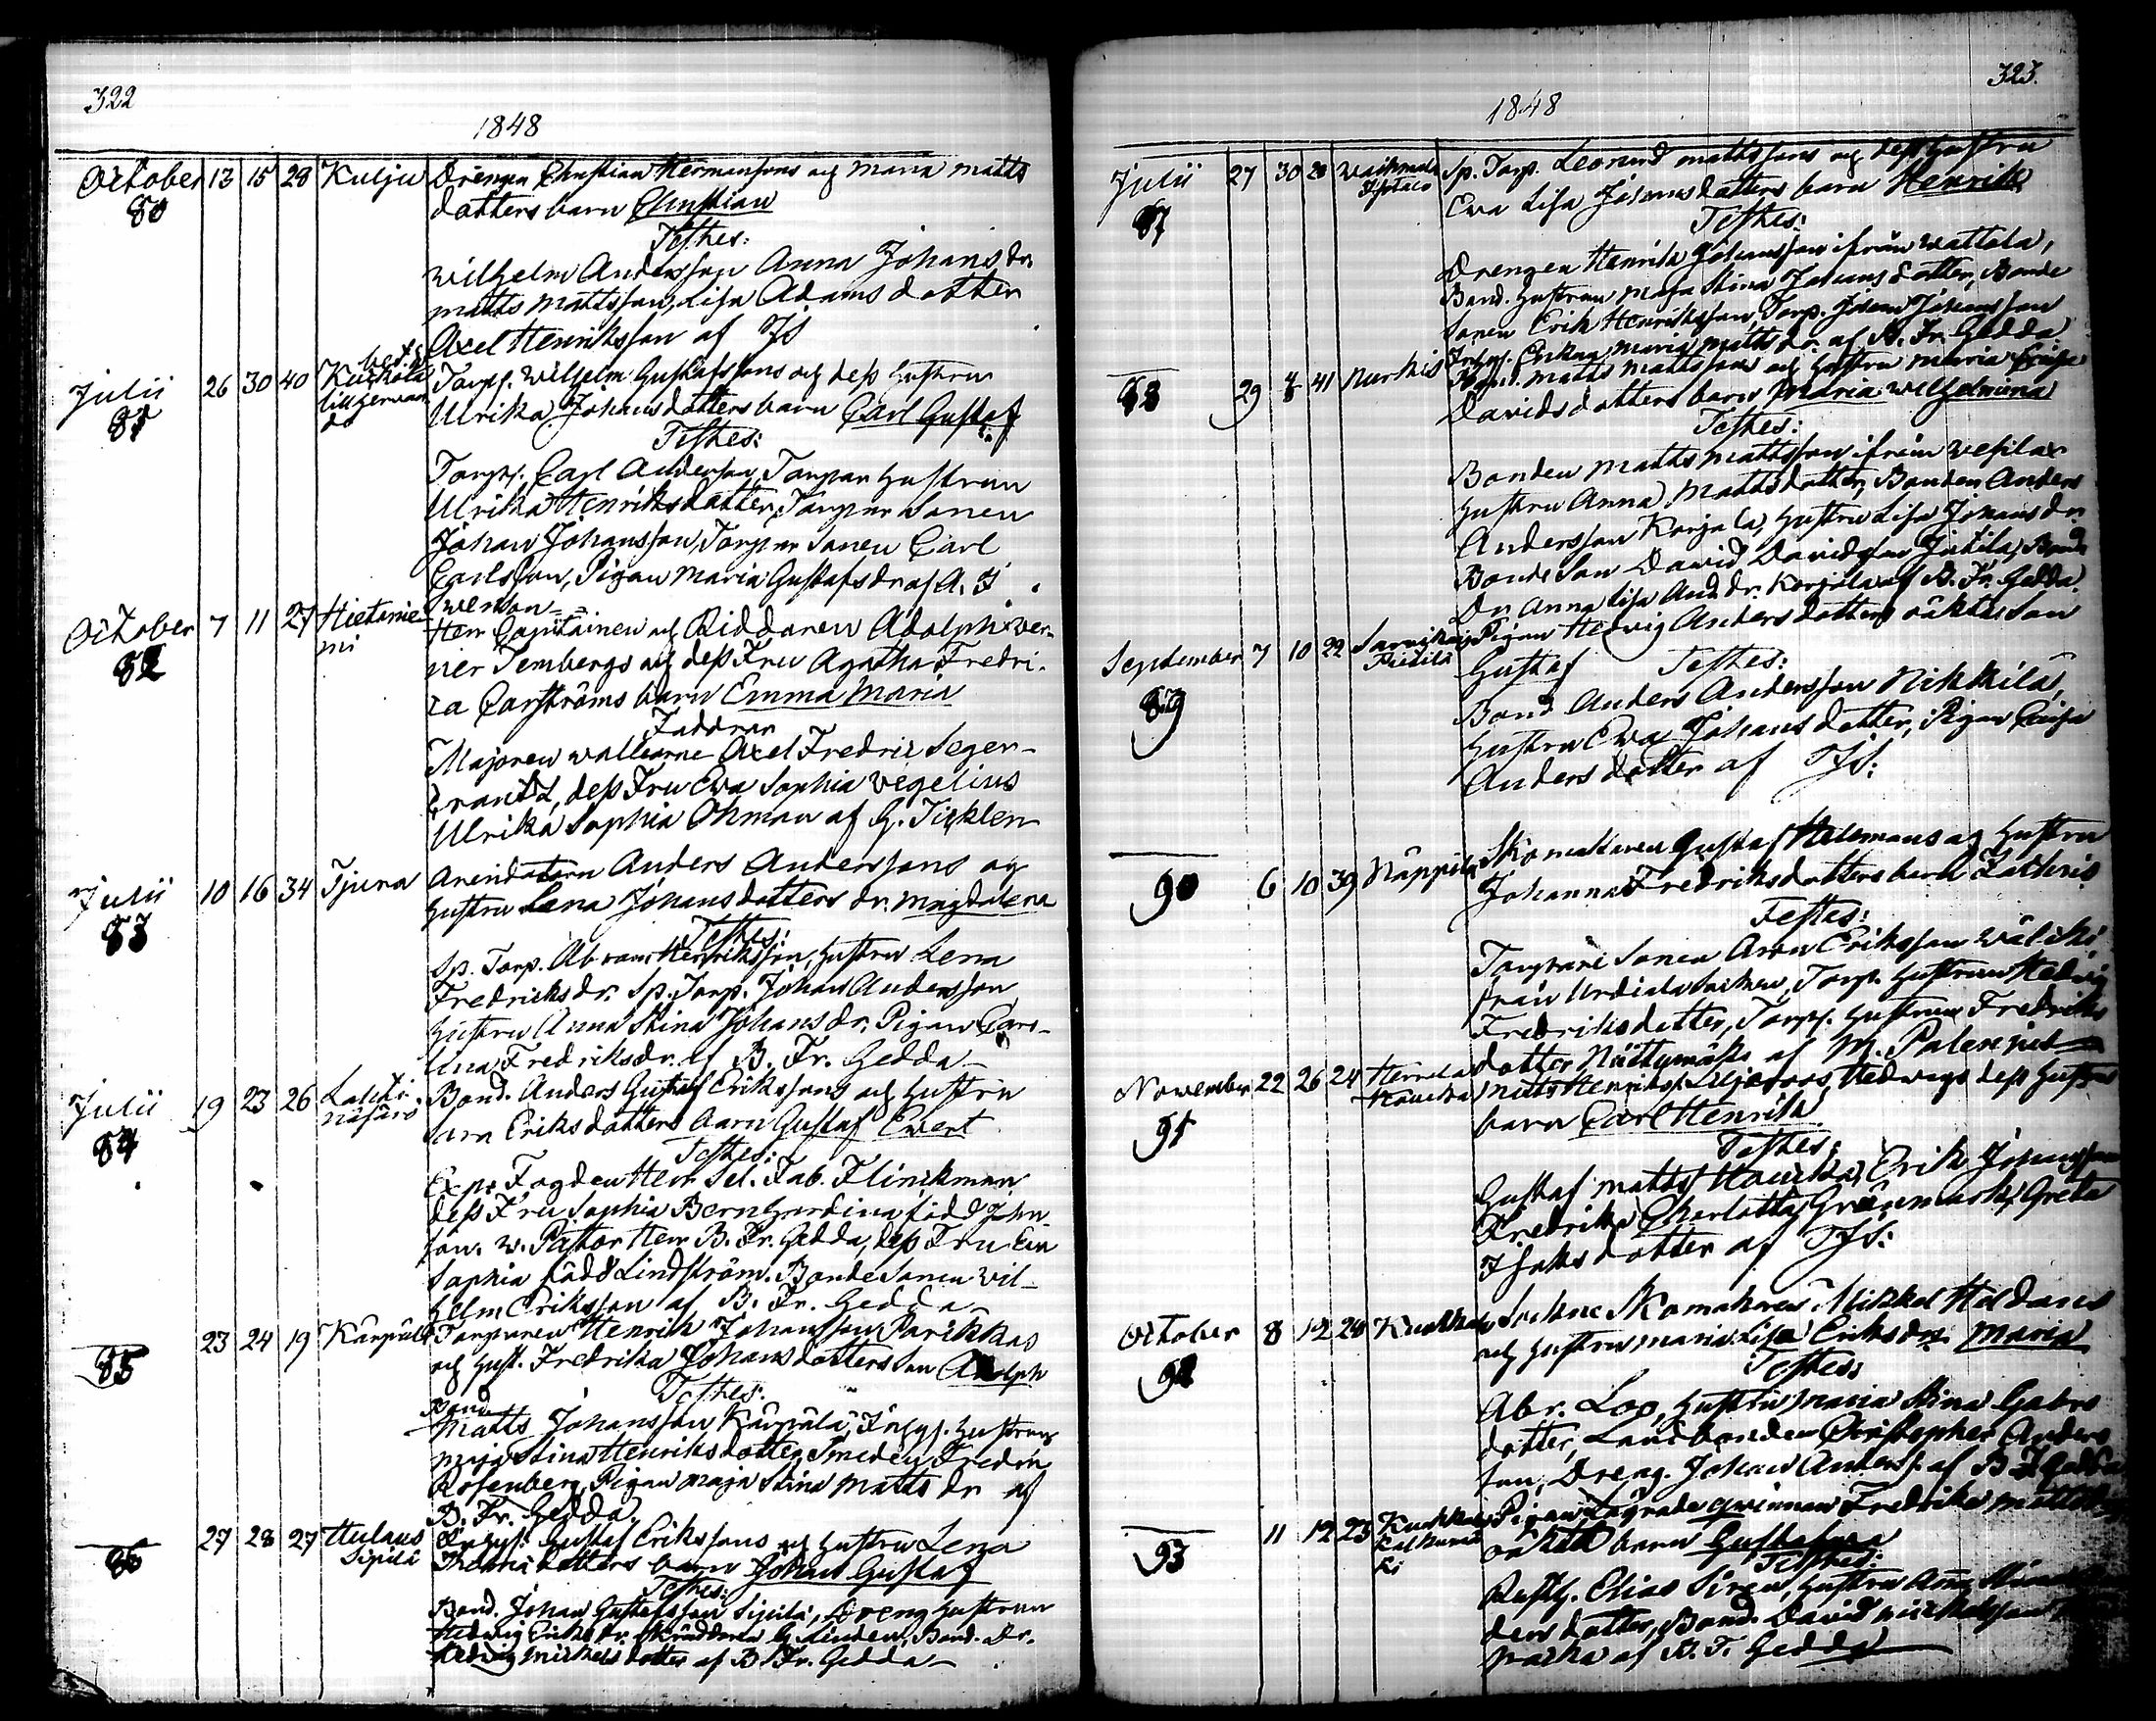 322
1848
October 13 15 28 Kulju Drengen Christian Hermanssons och Maria Matts
80 dotters barn Christian
Testes:
Wilhelm Andersson Anna Johans dr.
Matts Mattsson, Lisa Adams dotter
Axel Henriksson af JS
Julii 26 30 40 Torpf. Wilhelm Gustafssons och dess hustru
81 Ulrika Johansdotters barn Carl Gustaf
Testes:
Torpf. Carl Andersson, Torpar hustrun
Ulrika Henriksdotter, Torpar Sonen
Johan Johansson, Torpar Sonen Carl
Carlsson, Pigan Maria Gustafs dr af A. J
Swenson
October 7 11 27 Hietanie Herr Capitainen och Riddaren Adolph Wer-
82 mi ner Tembergs och dess Fru Agatha Fredri-
ca Carströms barn Emma Maria
Faddrar
Majoren Axel Fredric Seger-
brantz, dess Fru Eva Sophia Vegelius
Ulrika Sophia Öhman af G. Ticklen
Julii 10 16 34 Tjura Arendatorn Anders Anderssons och
83 hustru Lena Johansdotters dr. Magdalena
Testes:
Sp. Torp. Abram Henriksson, hustru Lena
Fredricks dr. Sp. Torp. Johan Andersson
hustru Anna Stina Johans dr. Pigan Caro-
lina Fredriks dr. af B. Fr. Gedda
Julii 19 23 26 Lahti Bond. Anders Gustaf Erikssons och hustru
84 Sara Eriksdotters barn Gustaf Ewert
Testes:
Exp. Fogden Herr Sel. Fab. Flinckman
dess Fru Sophia Bernhardina född John-
son. v. Pastor Herr B. Fr. Gedda, dess Fru Eva
Sophia född Lindström. Bonde Sonen Wil-
helm Eriksson af B. Fr. Gedda
85 23 24 19 Kärpälä Torparen Henrik Johansson Parikkas
och hust. Fredrika Johansdotters Son Adolph
Testes:
Bond.
Matts Johansson Kärpälä, Inhys. hustrun
Maja Stina Henriksdotter, Smeden Fredric
Rosenberg, Pigan Maja Stina Matts dr af
B. Fr. Gedda
86 27 28 27 Hulaus Inhys. Gustaf Erikssons och hustru Lena
Sipilä dotters barn Johan Gustaf
Testes:
Bond. Johan Gustafsson Sipilä, Dreng hustrun
Hedwig Eriks dr. Skräddaren G. Linden, Bond. dr.
Hedwig Mickels dotter af B. Fr. Gedda
323.
1848
Julii 27 30 Sp. Torp. Leonard Mattssons och dess hustru
87 Eva Lisa Johansdotters barn Henrik
Testes:
Drengen Henrik Johansson ifrån Wattola,
Bond. hustrun Maja Stina Johans dotter, Bonde
Sonen Erik Henriksson, Torp. Johan Johansson
Maria Matts dr. af B. Fr. Gedda
88 29 41 Nurkis Bond. Matts Mattssons och hustru Maria
Davidsdotters barn Maria Wilhelmina
Testes:
Bonden Matts Mattsson ifrån Wesilax
hustru Anna Mattsdotter, Bonden Anders
Andersson Korjala, hustru Lisa Johans dr
Bonde Son David Davidsson Jutila, Bonde
Dr. Anna Lisa And. dr. Korjala af B. Fr. Gedda.
September 7 10 22 Pigan Hedvig Anders dotters oäkta Son
89 Gustaf Testes:
Bond Anders Andersson Nikkilä,
hustru Eva Johans dotter, Pigan
Anders dotter af JS:
90 6 10 39 Näppilä Skomakaren Gustaf Helemans och hustru
Johanna Fredriksdotters barn Zachris
Testes:
Torpare Sonen Aron Eriksson
från Urdiala Socken, Torp. hustrun Hedvig
Fredriksdotter, Torpf. hustrun Fredriks
dotter af M. Palenius
November 22 26 24 Matts Henrikss. Liljeroos, Hedwigs dess hustru
91 barn Carl Henrik
Testes:
Gustaf Matts. Erik Johansson
Fredrika Charlotta Grönmark, Greta
Isaks dotter af JS:
October 8 12 Sockne Skomakaren Mikkel Heldans
92 och hustru Maria Lisa Eriks drs Maria
Testes:
Abr. Loo, hustru Maria Stina Gabrs
dotter, Landbonden Christopher Anders
son, Dreng. Johan Anderss. af B. F. Gedda
93 11 12 23 Pigan Lägrade qwinnan Fredrika Matts
oäkta barn Gustafwa
Testes:
Rustg. Elias Siren, hustru Anna Stina
ders dotter, Bond. David Mickelsson
af B. F. Gedda